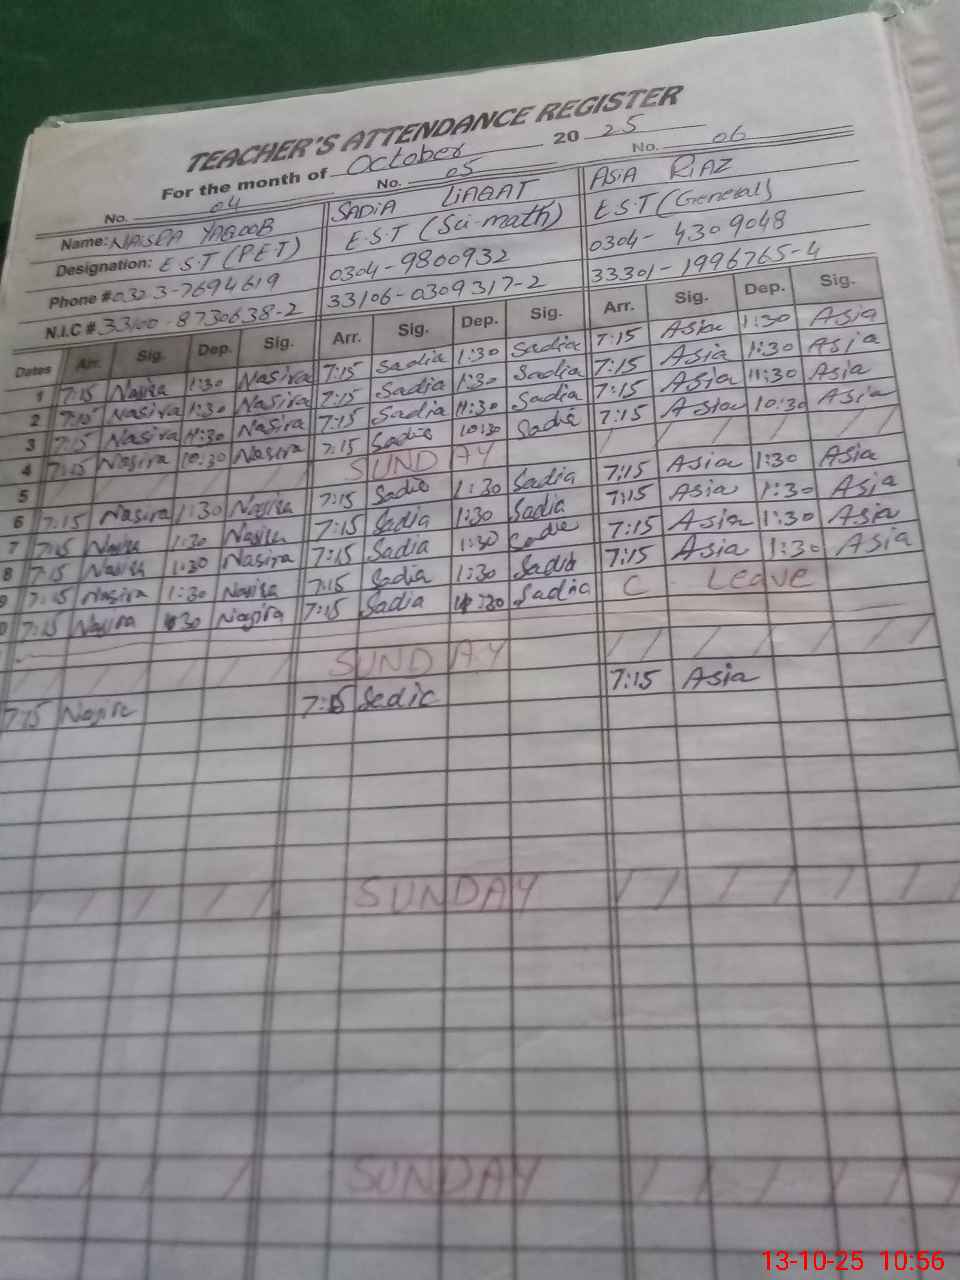 TEACHER'S ATTENDANCE REGISTER
For the month of October 20 25
No. 04 No. 05 No. 06
Name: NASEERA YAQOOB SADIA LIAQAT ASIA RIAZ
Designation: E S.T (PET) E.S.T (Sci-math) E.S.T (General)
Phone # 0323-7694619 0304-9800932 0304-4309048
N.I.C # 33100-8730638-2 33106-0309317-2 33301-1996765-4
Dates Arr. Sig. Dep. Sig. Arr. Sig. Dep. Sig. Arr. Sig. Dep. Sig.
1 7:15 Nasira 1:30 Nasira 7:15 Sadia 1:30 Sadia 7:15 Asia 1:30 Asia
2 7:15 Nasira 1:30 Nasira 7:15 Sadia 1:30 Sadia 7:15 Asia 1:30 Asia
3 7:15 Nasira 11:30 Nasira 7:15 Sadia 11:30 Sadia 7:15 Asia 11:30 Asia
4 7:15 Nasira 10:30 Nasira 7:15 Sadia 10:30 Sadia 7:15 Asia 10:30 Asia
5 SUNDAY
6 7:15 Nasira 1:30 Nasira 7:15 Sadia 1:30 Sadia 7:15 Asia 1:30 Asia
7 7:15 Nasira 1:30 Nasira 7:15 Sadia 1:30 Sadia 7:15 Asia 1:30 Asia
8 7:15 Nasira 1:30 Nasira 7:15 Sadia 1:30 Sadia 7:15 Asia 1:30 Asia
9 7:15 Nasira 1:30 Nasira 7:15 Sadia 1:30 Sadia 7:15 Asia 1:30 Asia
0 7:15 Nasira Nasira 7:15 Sadia Sadia C. Leave
SUNDAY
7:15 Nasira 7:15 Sadia 7:15 Asia
SUNDAY
SUNDAY
13-10-25 10:56